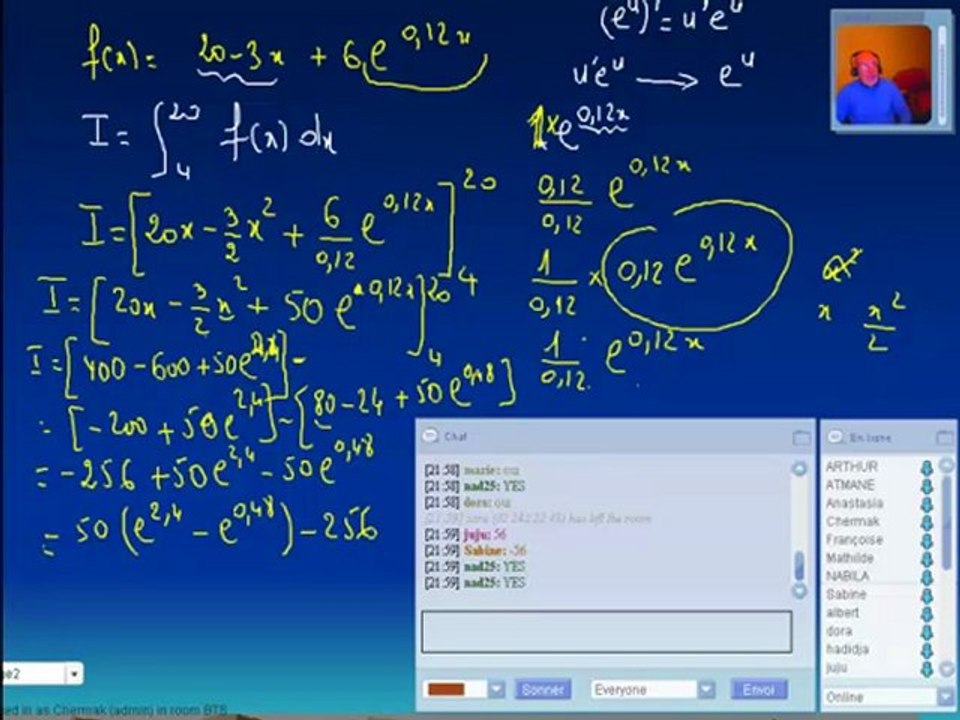 f(x) = 20 - 3x + 6e^{0,12x}
I = ∫_4^{20} f(x) dx
I = [20x - 3/2 x² + 6/0,12 e^{0,12x}]_4^{20}
I = [20x - 3/2 x² + 50 e^{0,12x}]_4^{20}
I = [400 - 600 + 50e^{2,4}] -
= [-200 + 50e^{2,4}] - [80 - 24 + 50e^{0,48}]
= -256 + 50e^{2,4} - 50e^{0,48}
= 50(e^{2,4} - e^{0,48}) - 256
(e^u)' = u'e^u
u'e^u → e^u
1×e^{0,12x}
0,12/0,12 e^{0,12x}
1/0,12 × 0,12 e^{0,12x}
1/0,12 e^{0,12x}
x x²/2
Chat
[21:58] marie: oui
[21:58] nad25: YES
[21:58] dora: oui
has left the room
[21:59] juju: 56
[21:59] Sabine: -56
[21:59] nad25: YES
[21:59] nad25: YES
Sonner Everyone Envoi
En ligne
ARTHUR
ATMANE
Anastasia
Chermak
Françoise
Mathilde
NABILA
Sabine
albert
dora
hadidja
juju
Online
ne2
ed in as Chermak (admin) in room BTS